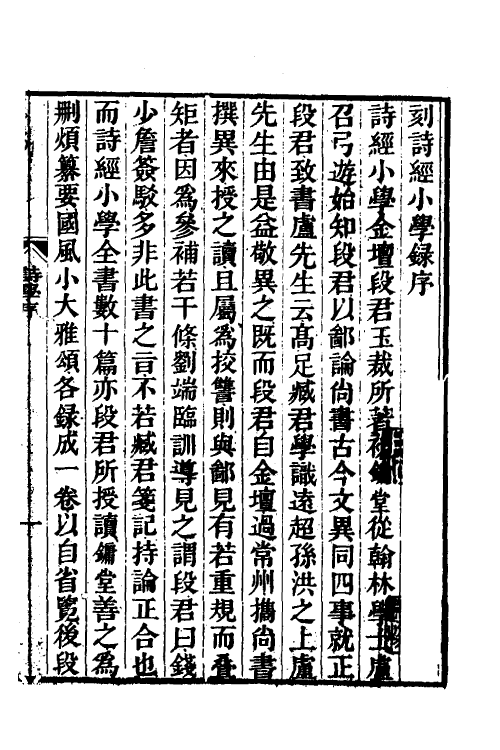 刻詩經小學錄序
詩經小學金壇段君玉裁所著初鏞堂從翰林學士盧
召弓遊始知段君以鄙論尙書古今文異同四事就正
段君致書盧先生云高足臧君學識遠超孫洪之上盧
先生由是益敬異之既而段君自金壇過常州攜尙書
撰異來授之讀且屬為挍讐則與鄙見有若重規而疊
矩者因為參補若干條劉端臨訓導見之謂段君曰錢
少詹簽駁多非此書之㫖不若臧君箋記持論正合也
而詩經小學全書數十篇亦段君所授讀鏞堂善之為
刪煩纂要國風小大雅頌各錄成一卷以自省覽後段
詩學序
一